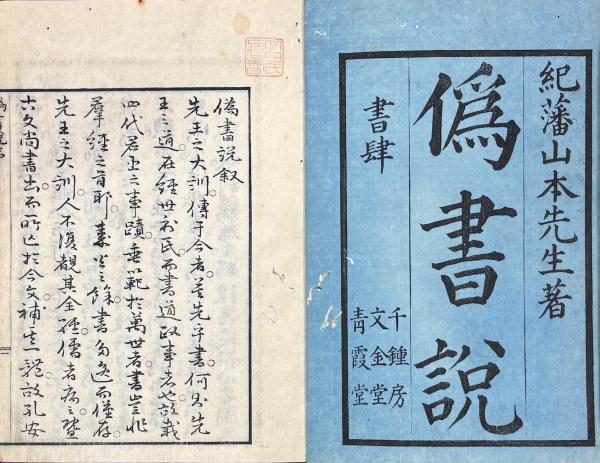 紀藩山本先生著
偽書說
書肆
千鍾房
文金堂
青霞堂
偽書説叙
先王之大訓。傳于今者。莫先乎書。何則先
王之道。在經世利民。而書道政事者也。故載
四代君臣之事蹟。垂以範於萬世者。書豈非
羣經之首耶。秦火之餘。書多逸而僅存。
先王之大訓。人不復覩其全經。儒者病之。暨
古文尚書出。而所亡於今文。補 體。故孔安